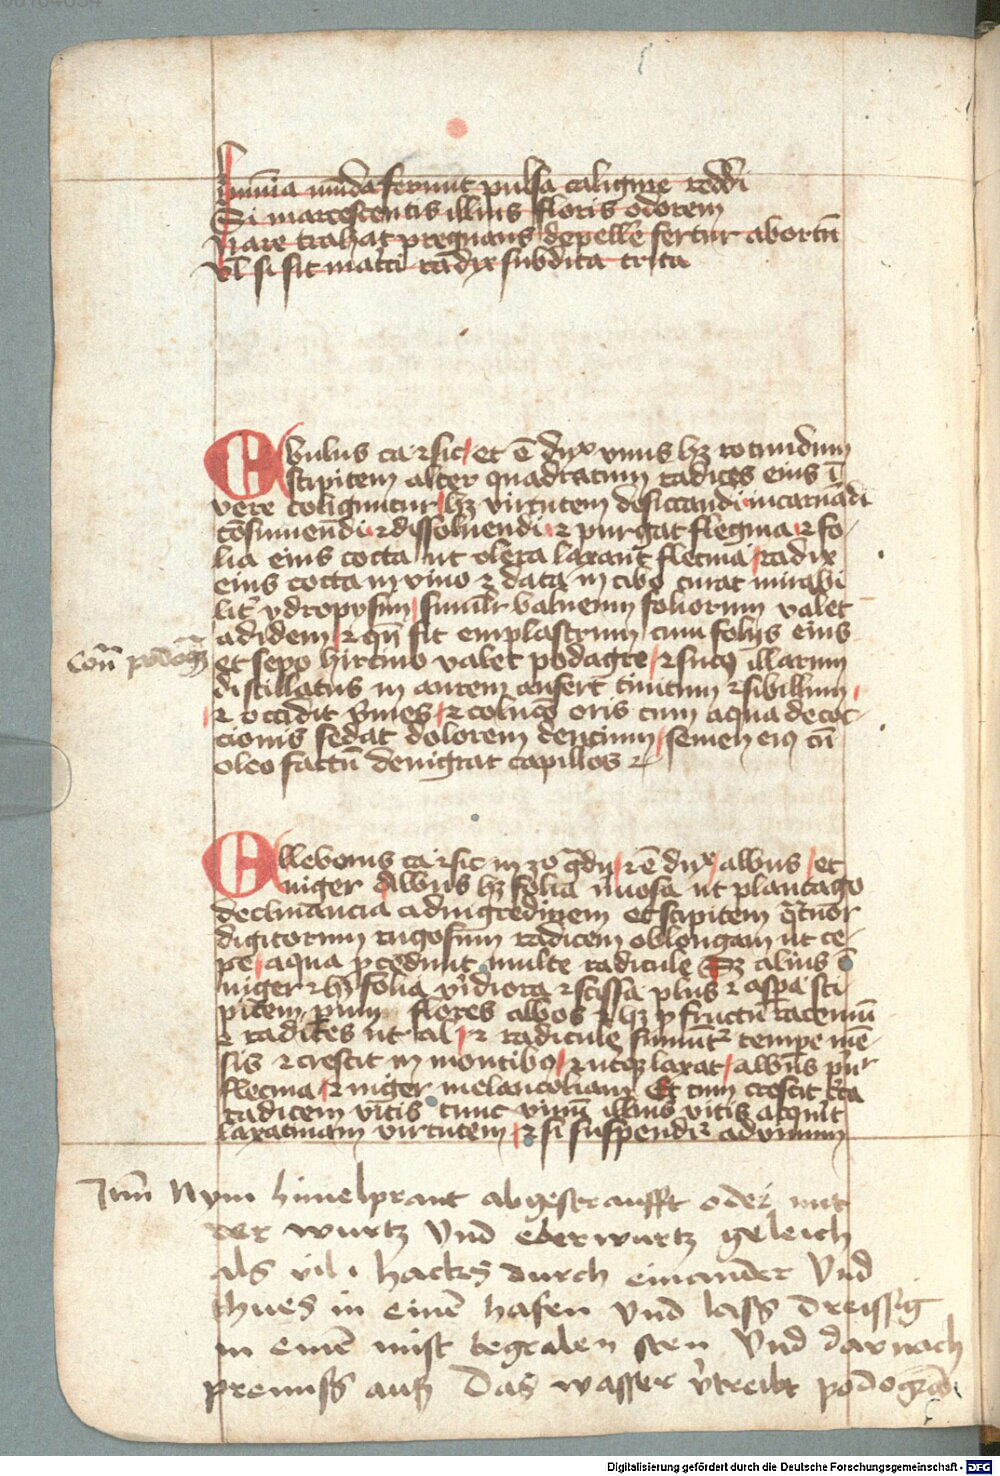 lumina munda ferunt pulsa caligine reddi
Si marcescentis illius floris odorem
Nare trahat pregnans depelle fertur abortū
Vl si sit mat̄ci radix subdita trita
Ebulus ca· ⁊ sic / et ē dux vnus hꝫ rotundum
stipitem alter quadratum radices eius ī
vere coliguntur / hꝫ virtutem desiccandi incarnādi
cōsumiendi ⁊ dissoluendi ⁊ purgat flegma ⁊ fo-
lia eius cocta ut olera laxant flecma / radix
eius cocta in vino ⁊ data in cibo curat mirabi
lit̄ ydropysim / simil̄r balneum foliorum valet
ad idem / ⁊ qn̄ fit emplastrum cum folijs eius
Cont̄ podaḡ
et sepo hircino valet podagre / ⁊ sucꝯ illarum
distillatus in aurem aufert tinitum ⁊ sibillum /
⁊ occidit v̄mes / ⁊ oris cum aqua decoc-
cionis sedat dolorem dencium / semen eiꝯ cū
oleo factū denigrat capillos ⁊c
Elleborus ca· ⁊ sic· in 3o ḡdu / ⁊ ē dux albus / et
niger albus hꝫ folia ut plantago
declinancia ad et stipitem q̄tuor
digitorum rugosum radicem oblongam ut ce-
pe / a qua ꝓcedunt multe radicule Sꝫ alius ē
niger ⁊ hꝫ folia v̄idiora ⁊ scissa plus ⁊ aspa sti
pitem flores albos ⁊ hꝫ ꝓ fructū racemū
⁊ radices ut al / ⁊ radicule sumūt᷑ tempe mē-
sis ⁊ crescit in montibꝯ / ⁊ utꝫ laxat / albus
flecma / ⁊ niger melancoliam Et cum crescit c̄ca
radicem vitis tunc vinū illius vitis acquīt
laxatiuam virtutem / ⁊ si suspendit᷑ ad vinum
Itm̄ Nym himelprant abgestraufft oder mit
der wurtz Vnd eberwurtz geleich
als vil · hacks durch einander Vnd
thues in einē hafen Vnd lass dreissig
in einē mist begraben sten Vnd darnach
prennss aus Das wasser v̄treibt podogrā
Digitalisierung gefördert durch die Deutsche Forschungsgemeinschaft - DFG